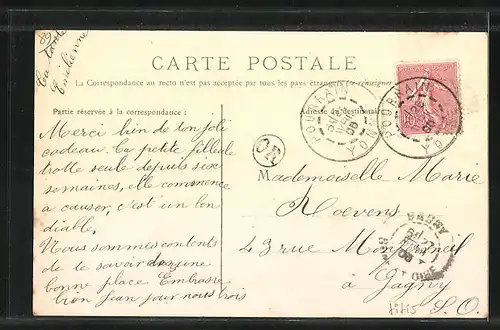 Ta tante
Emilienne
CARTE POSTALE
La Correspondance au recto n'est pas acceptée par tous les pays étrangers
Partie réservée à la correspondance :
Adresse du destinataire
POURRAIN
YONNE
POURRAIN
OR
GAGNY
Merci bien de ton joli
cadeau. Ta petite filleule
trotte seule depuis six
semaines, elle commence
a causer, c'est un bon
diable.
Nous sommes contents
de le savoir dans une
bonne place Embrasse
bien Jean pour nous trois
Mademoiselle Marie
Roevens
43 rue
à Gagny
S. O.